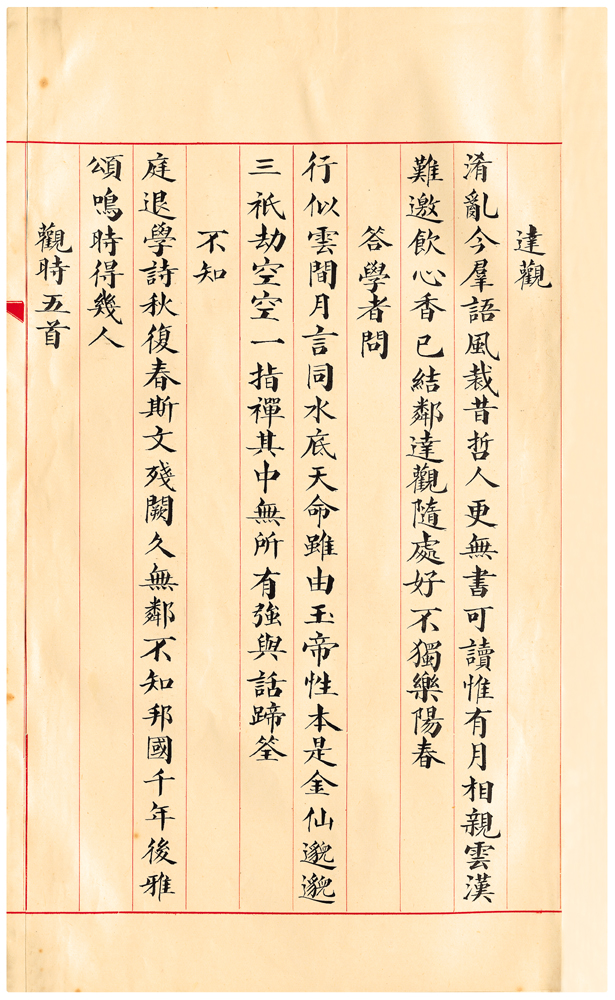 達觀
淆亂今羣語風栽昔哲人更無書可讀惟有月相親雲漢
難邀飲心香已結鄰達觀隨處好不獨樂陽春
答學者問
行似雲間月言同水底天命雖由玉帝性本是金仙邈邈
三祇劫空空一指禪其中無所有強與話蹄筌
不知
庭退學詩秋復春斯文殘闕久無鄰不知邦國千年後雅
頌鳴時得幾人
觀時五首